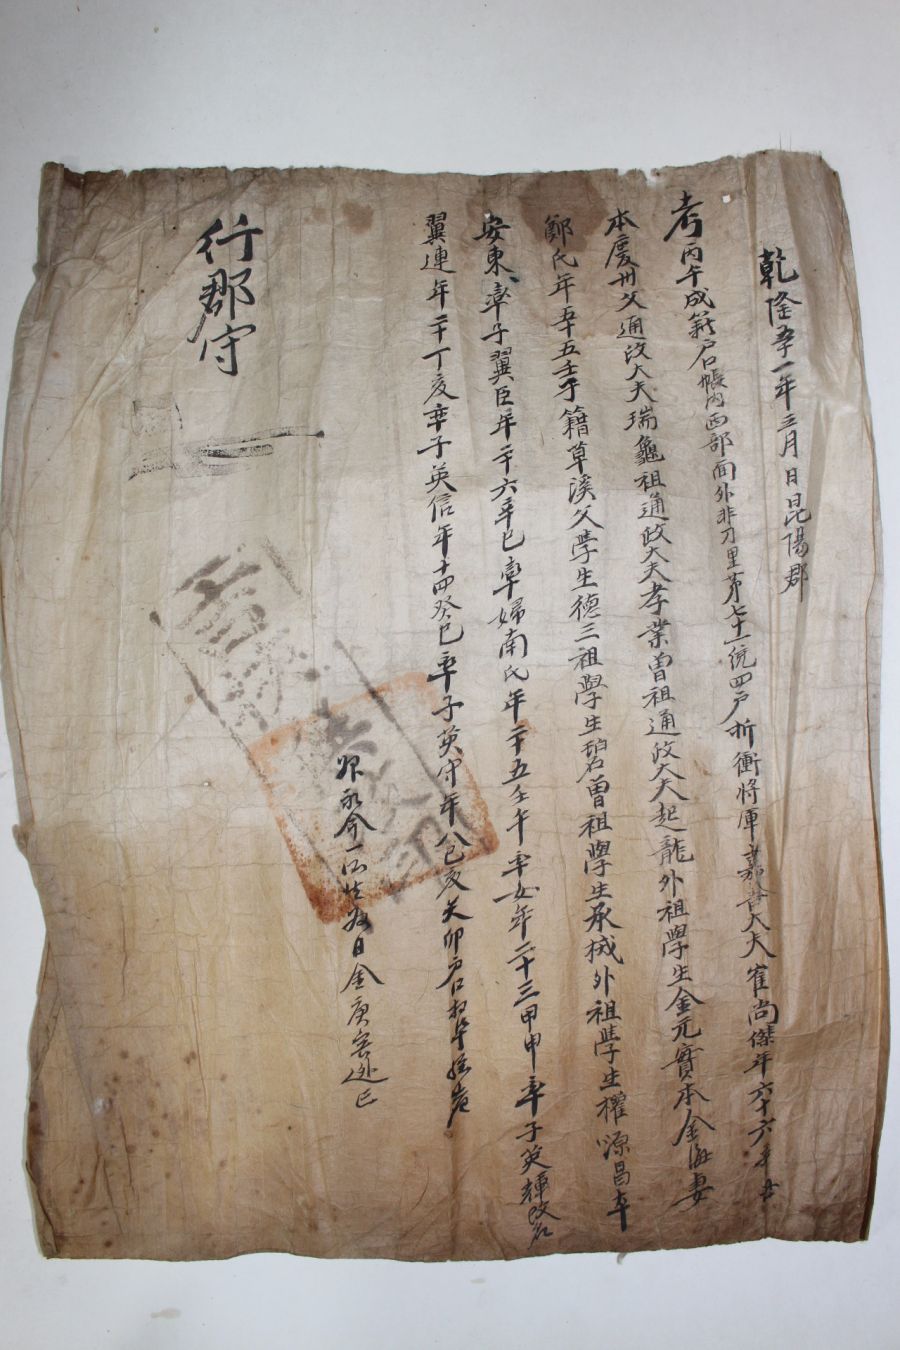 乾隆五十一年三月日昆陽郡
考丙午成籍戶口帳內西部面外非刀里第七十一統四戶折衝將軍嘉善大夫崔尚傑年六十六辛丑
本慶州父通政大夫瑞龜祖通政大夫孝業曾祖通政大夫起龍外祖學生金元寶本金海妻
鄭氏年五十五壬子籍草溪父學生德三祖學生碧曾祖學生承棫外祖學生權源昌本
安東率子翼臣年二十六辛巳率婦南氏年二十五壬午率女年二十三甲申率子英輝改名
翼連年二十丁亥率子英信年十四癸巳率子英守年八己亥癸卯戶口相準
奴 一所生 日金庚 逃亡
行郡守